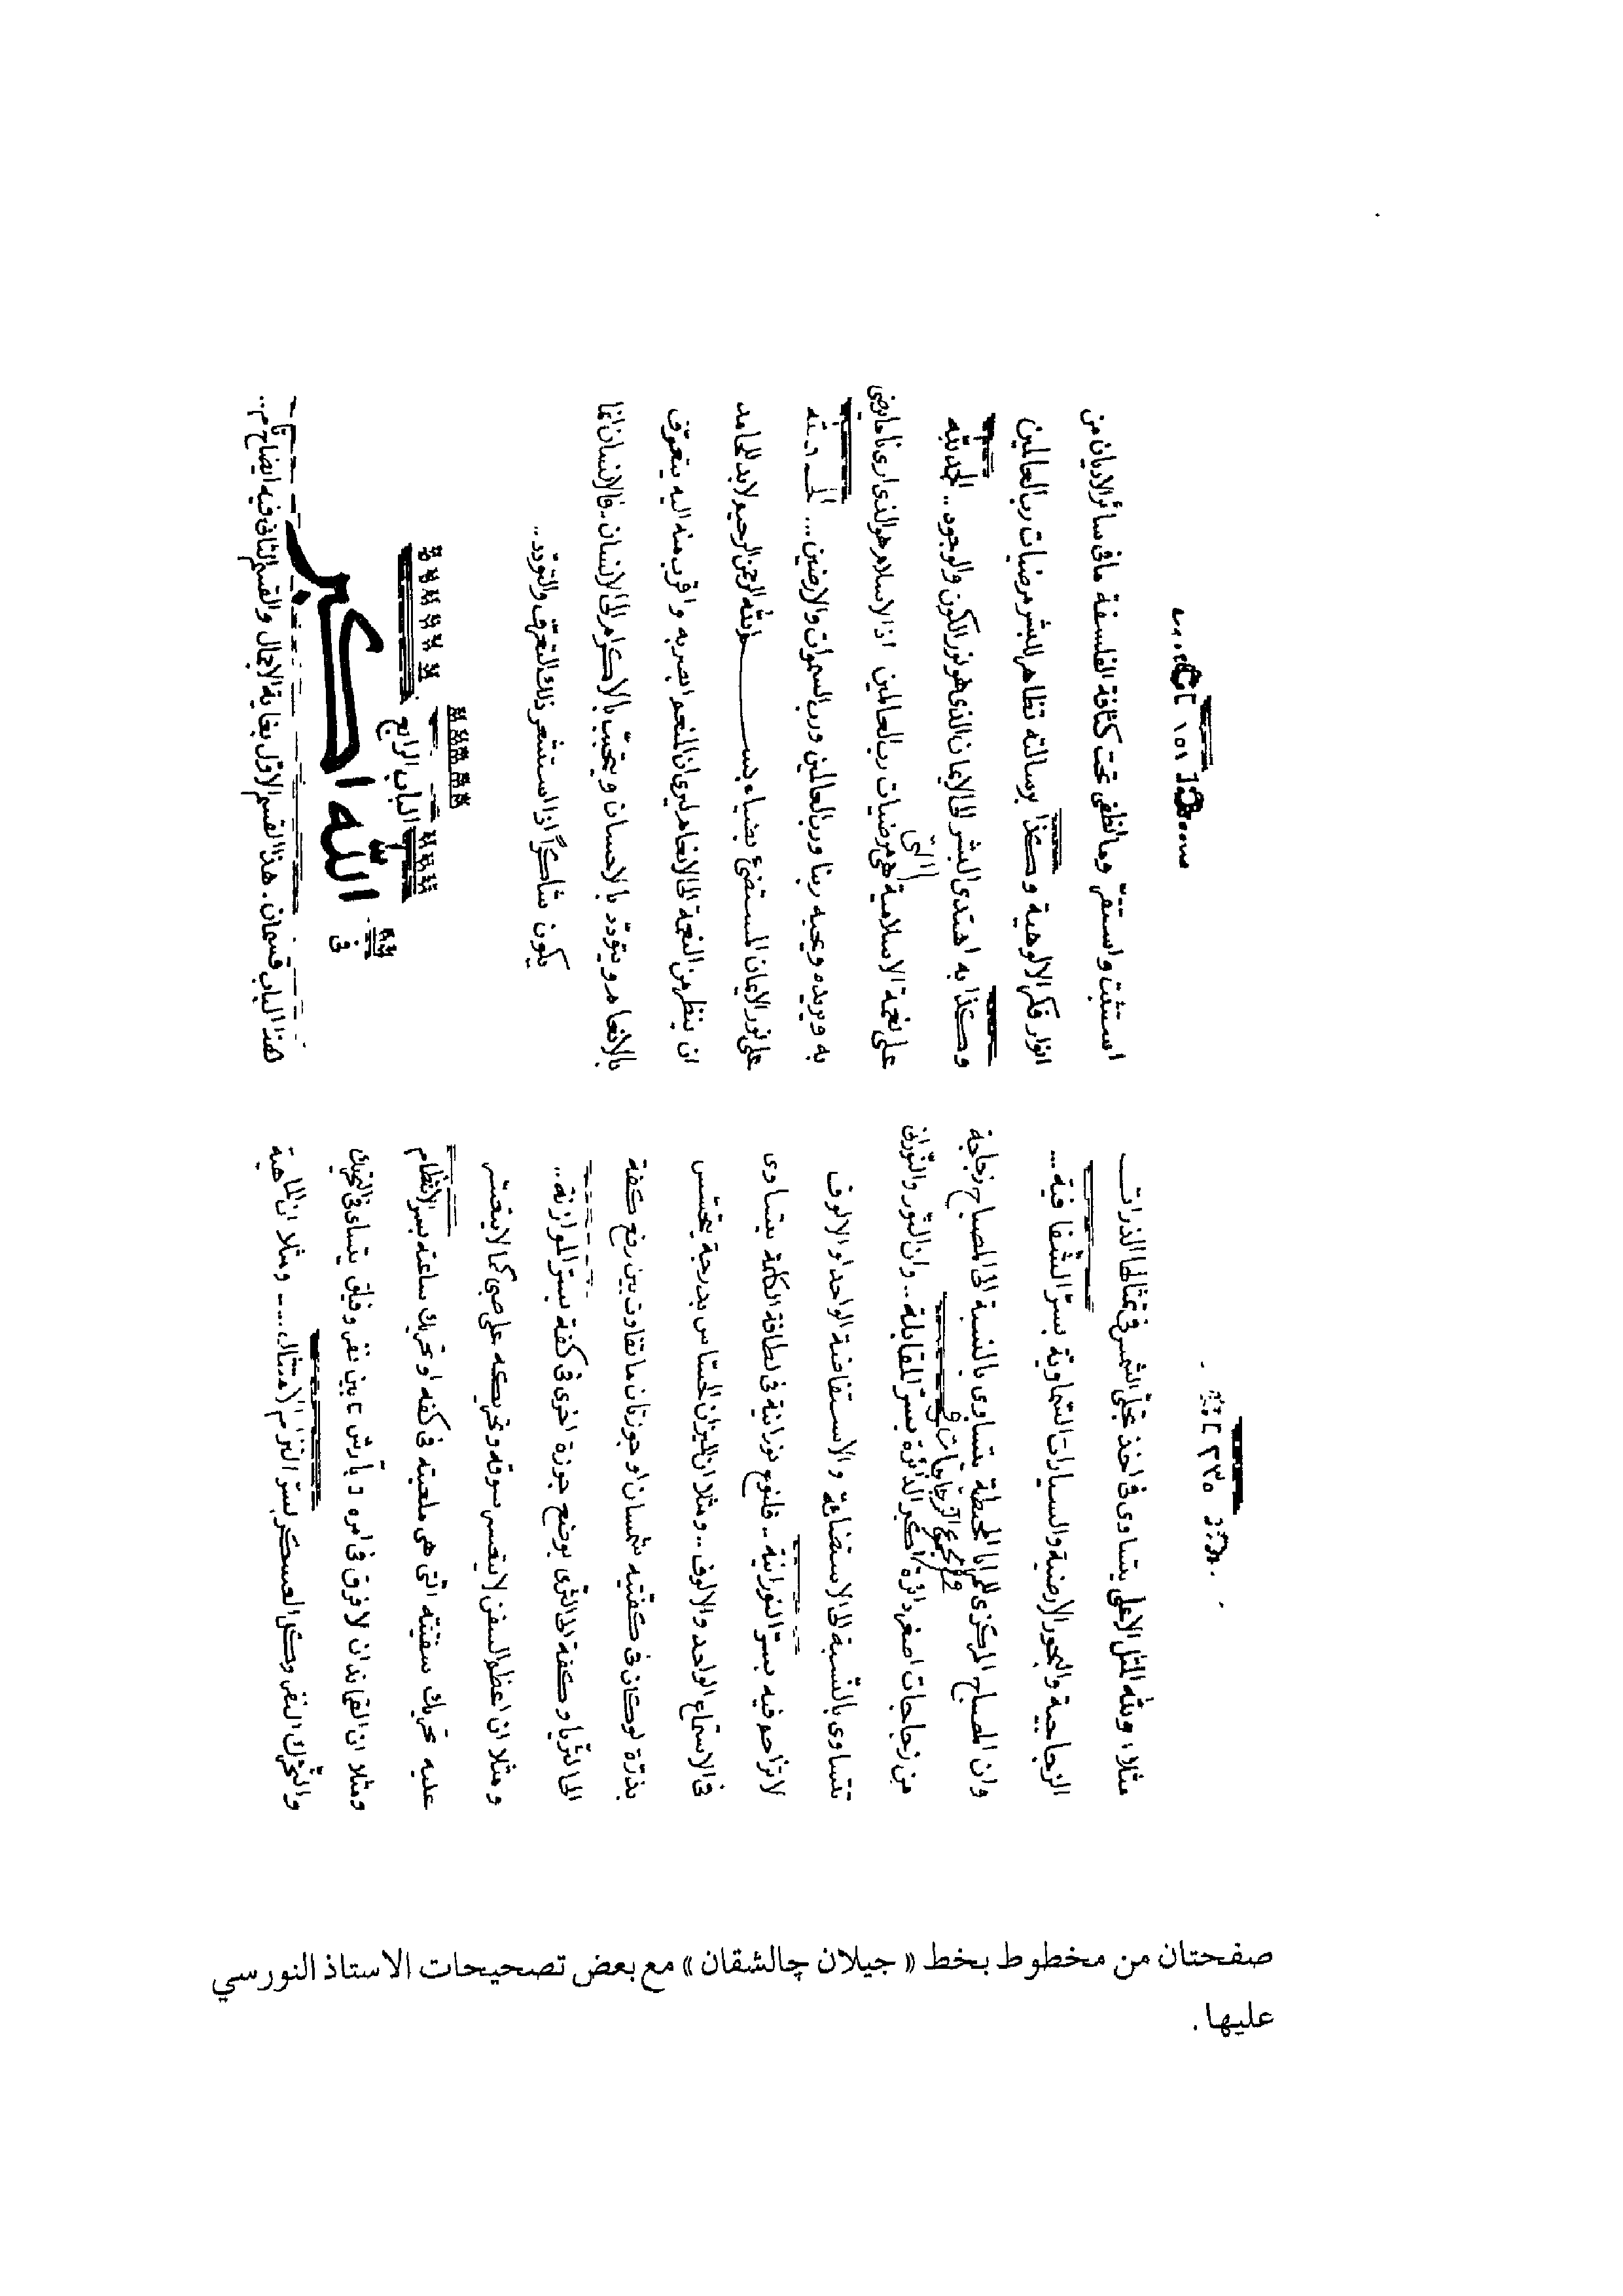 ٢٣٥
مثلا، ولله المثل الاعلى يتساوى فى اخذ تجلّى الشمس فى تمثالها الذرات
الزجاجية والبحور الارضية والسيارات السّماويّة بسرّ الشّفافية ..
وان المصباح المركزى للمرايا المحيطة يتساوى بالنسبة الى المصباح زجاجة
من زجاجات اصغر دائرة ومجموع الزّجاجات فى اكبر الدائرة بسرّ المقابلة .. وان النّور والنّورانى
تتساوى بالنّسبة الى الاستضائة والاستفاضة الواحد والالوف
لا تزاحم فيه بسرّ النورانيّة .. فلنوع نورانية فى لطافة الكلمة يتساوى
فى الاستماع الواحد والالوف .. ومثلا ان الميزان الحسّاس بدرجة يتحسّس
بذرّة لو كان فى كفّتيه شمسان او جوزتان ما تفاوت بين رفع كفة
الى الثريا وكفة الى الثّرى بوضع جوزة اخرى فى كفة بسرّ الموازنة ..
ومثلا ان اعظم السفن لا يتعسر سوقه وتحريكه على صبى كما لا يتعسّر
عليه تحريك سفينته الّتى هى ملعبته فى كفه او تحريك ساعته بسرّ الانتظام
ومثلا ان القائد ان لا فرق فى امره بآرش بين نفر وفيلق يتساوى فى التحريك
والتّحرّك النفر وكل العسكر بسرّ التزام الامتثال .... ومثلا ان الماهية
١٥١
استثبت واستقرّ وما انطفى تحت كثافة الفلسفة ما فى سائر الاديان من
انوار فكر الالوهية وهكذا برسالته تظاهر للبشر مرضيات رب العالمين
وهكذا به اهتدى البشر الى الايمان الذى هو نور الكون والوجود .. الحمد لله
على نعمة الاسلامية التى هى مرضيات رب العالمين اذ الاسلام هو الذى ارانا ما يرضى
به ويريده ويحبه ربنا ورب العالمين ورب السموات والارضين ... الحمد لله
على نور الايمان المستضئ بضياء بسم الله الرحمن الرحيم لابد للحامد
ان ينظر من النعمة الى الانعام ليرى ان المنعم ابصر به واقرب منه اليه يتعرّف
بالانعام ويتودّد بالاحسان ويتحبّب بالاكرام الى الانسان .. فالانسان انما
يكون شاكراً اذا استشعر ذلك التعرّف والتّودد ..
الباب الرابع
فى الله اكبر
هذا الباب قسمان . هذا القسم الاوّل بغاية الاجمال والقسم الثانى فيه ايضاح تامّ ..
صفحتان من مخطوط بخط « جيلان چالشقان » مع بعض تصحيحات الاستاذ النورسي
عليها .